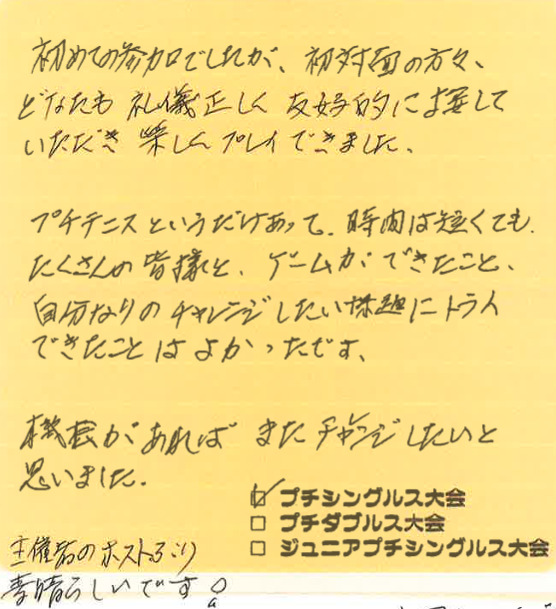 初めての参加でしたが、初対面の方々、
どなたも礼儀正しく友好的に接して
いただき楽しくプレイできました。
プチテニスというだけあって、時間は短くても、
たくさんの皆様と、ゲームができたこと、
自分なりのチャレンジしたい課題にトライ
できたことはよかったです、
機会があればまたチャレンジしたいと
思いました。
プチシングルス大会
プチダブルス大会
ジュニアプチシングルス大会
主催者のホストぶり
素晴らしいです